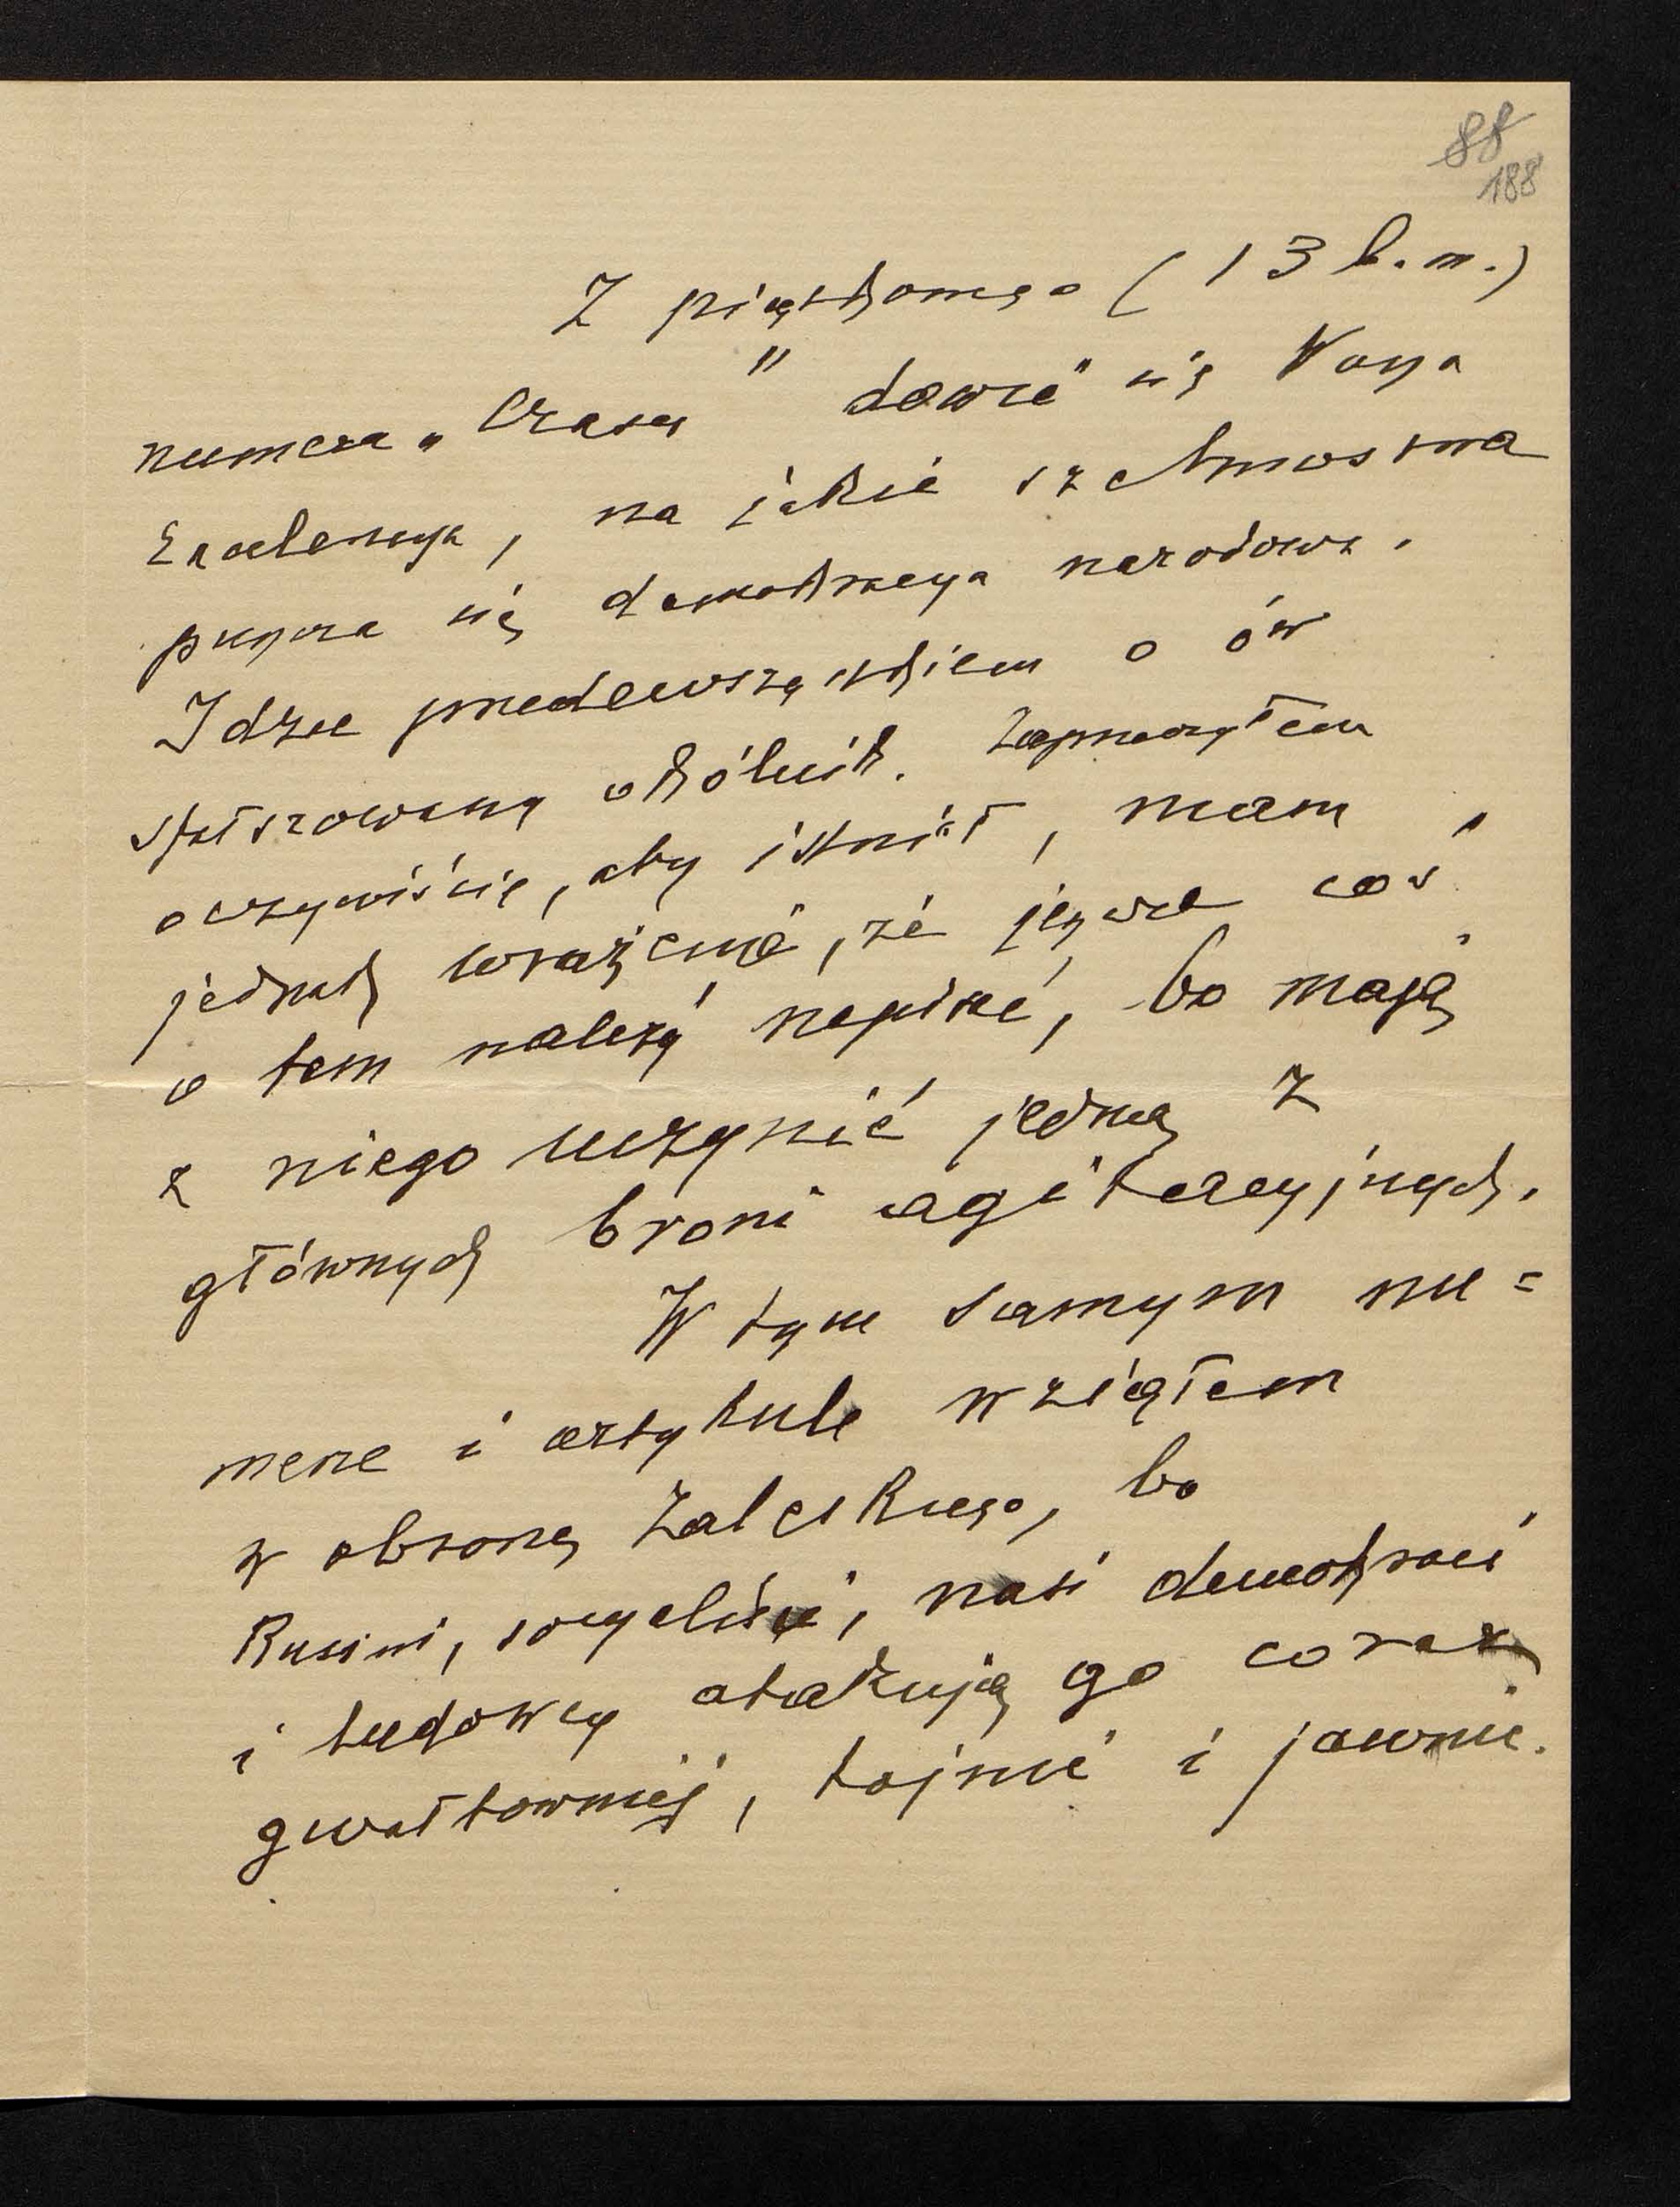 88
188
Z piątkowego (13 b.m.)
numeru „Czasu" dowie się Wasza
Excelencya, na jakie szelmostwa
puszcza się demokracya narodowa.
Idzie przedewszystkiem o ów
sfałszowany okólnik. Zaprzeczyłem
oczywiście, aby istniał, mam
jednak wrażenie, że jeszcze coś
o tem należy napisać, bo mają
z niego uczynić jedną z
głównych broni agitacyjnych.
W tym samym nu=
merze i artykule wziąłem
w obronę Zaleskiego, bo
Rusini, socyaliści, nasi demokraci
i ludowcy atakują go coraz
gwałtowniej, tajnie i jawnie.